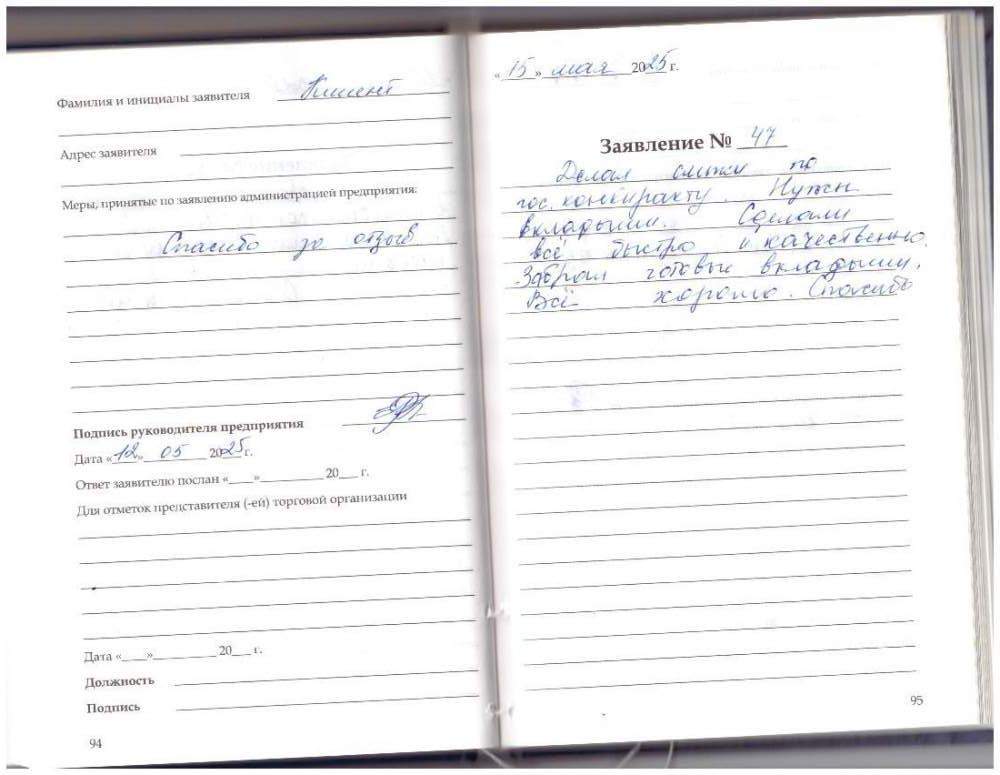 Фамилия и инициалы заявителя Клиент
Адрес заявителя
Меры, принятые по заявлению администрацией предприятия:
Спасибо за отзыв
Подпись руководителя предприятия
Дата «12» 05 2025 г.
Ответ заявителю послан «___»________ 20__ г.
Для отметок представителя (-ей) торговой организации
Дата «___»________ 20__ г.
Должность
Подпись
94
«15» мая 2025 г.
Заявление № 47
Делал слепки по
гос. контракту. Нужны
вкладыши. Сделали
всё быстро и качественно.
Забрал готовые вкладыши.
Всё хорошо. Спасибо
95